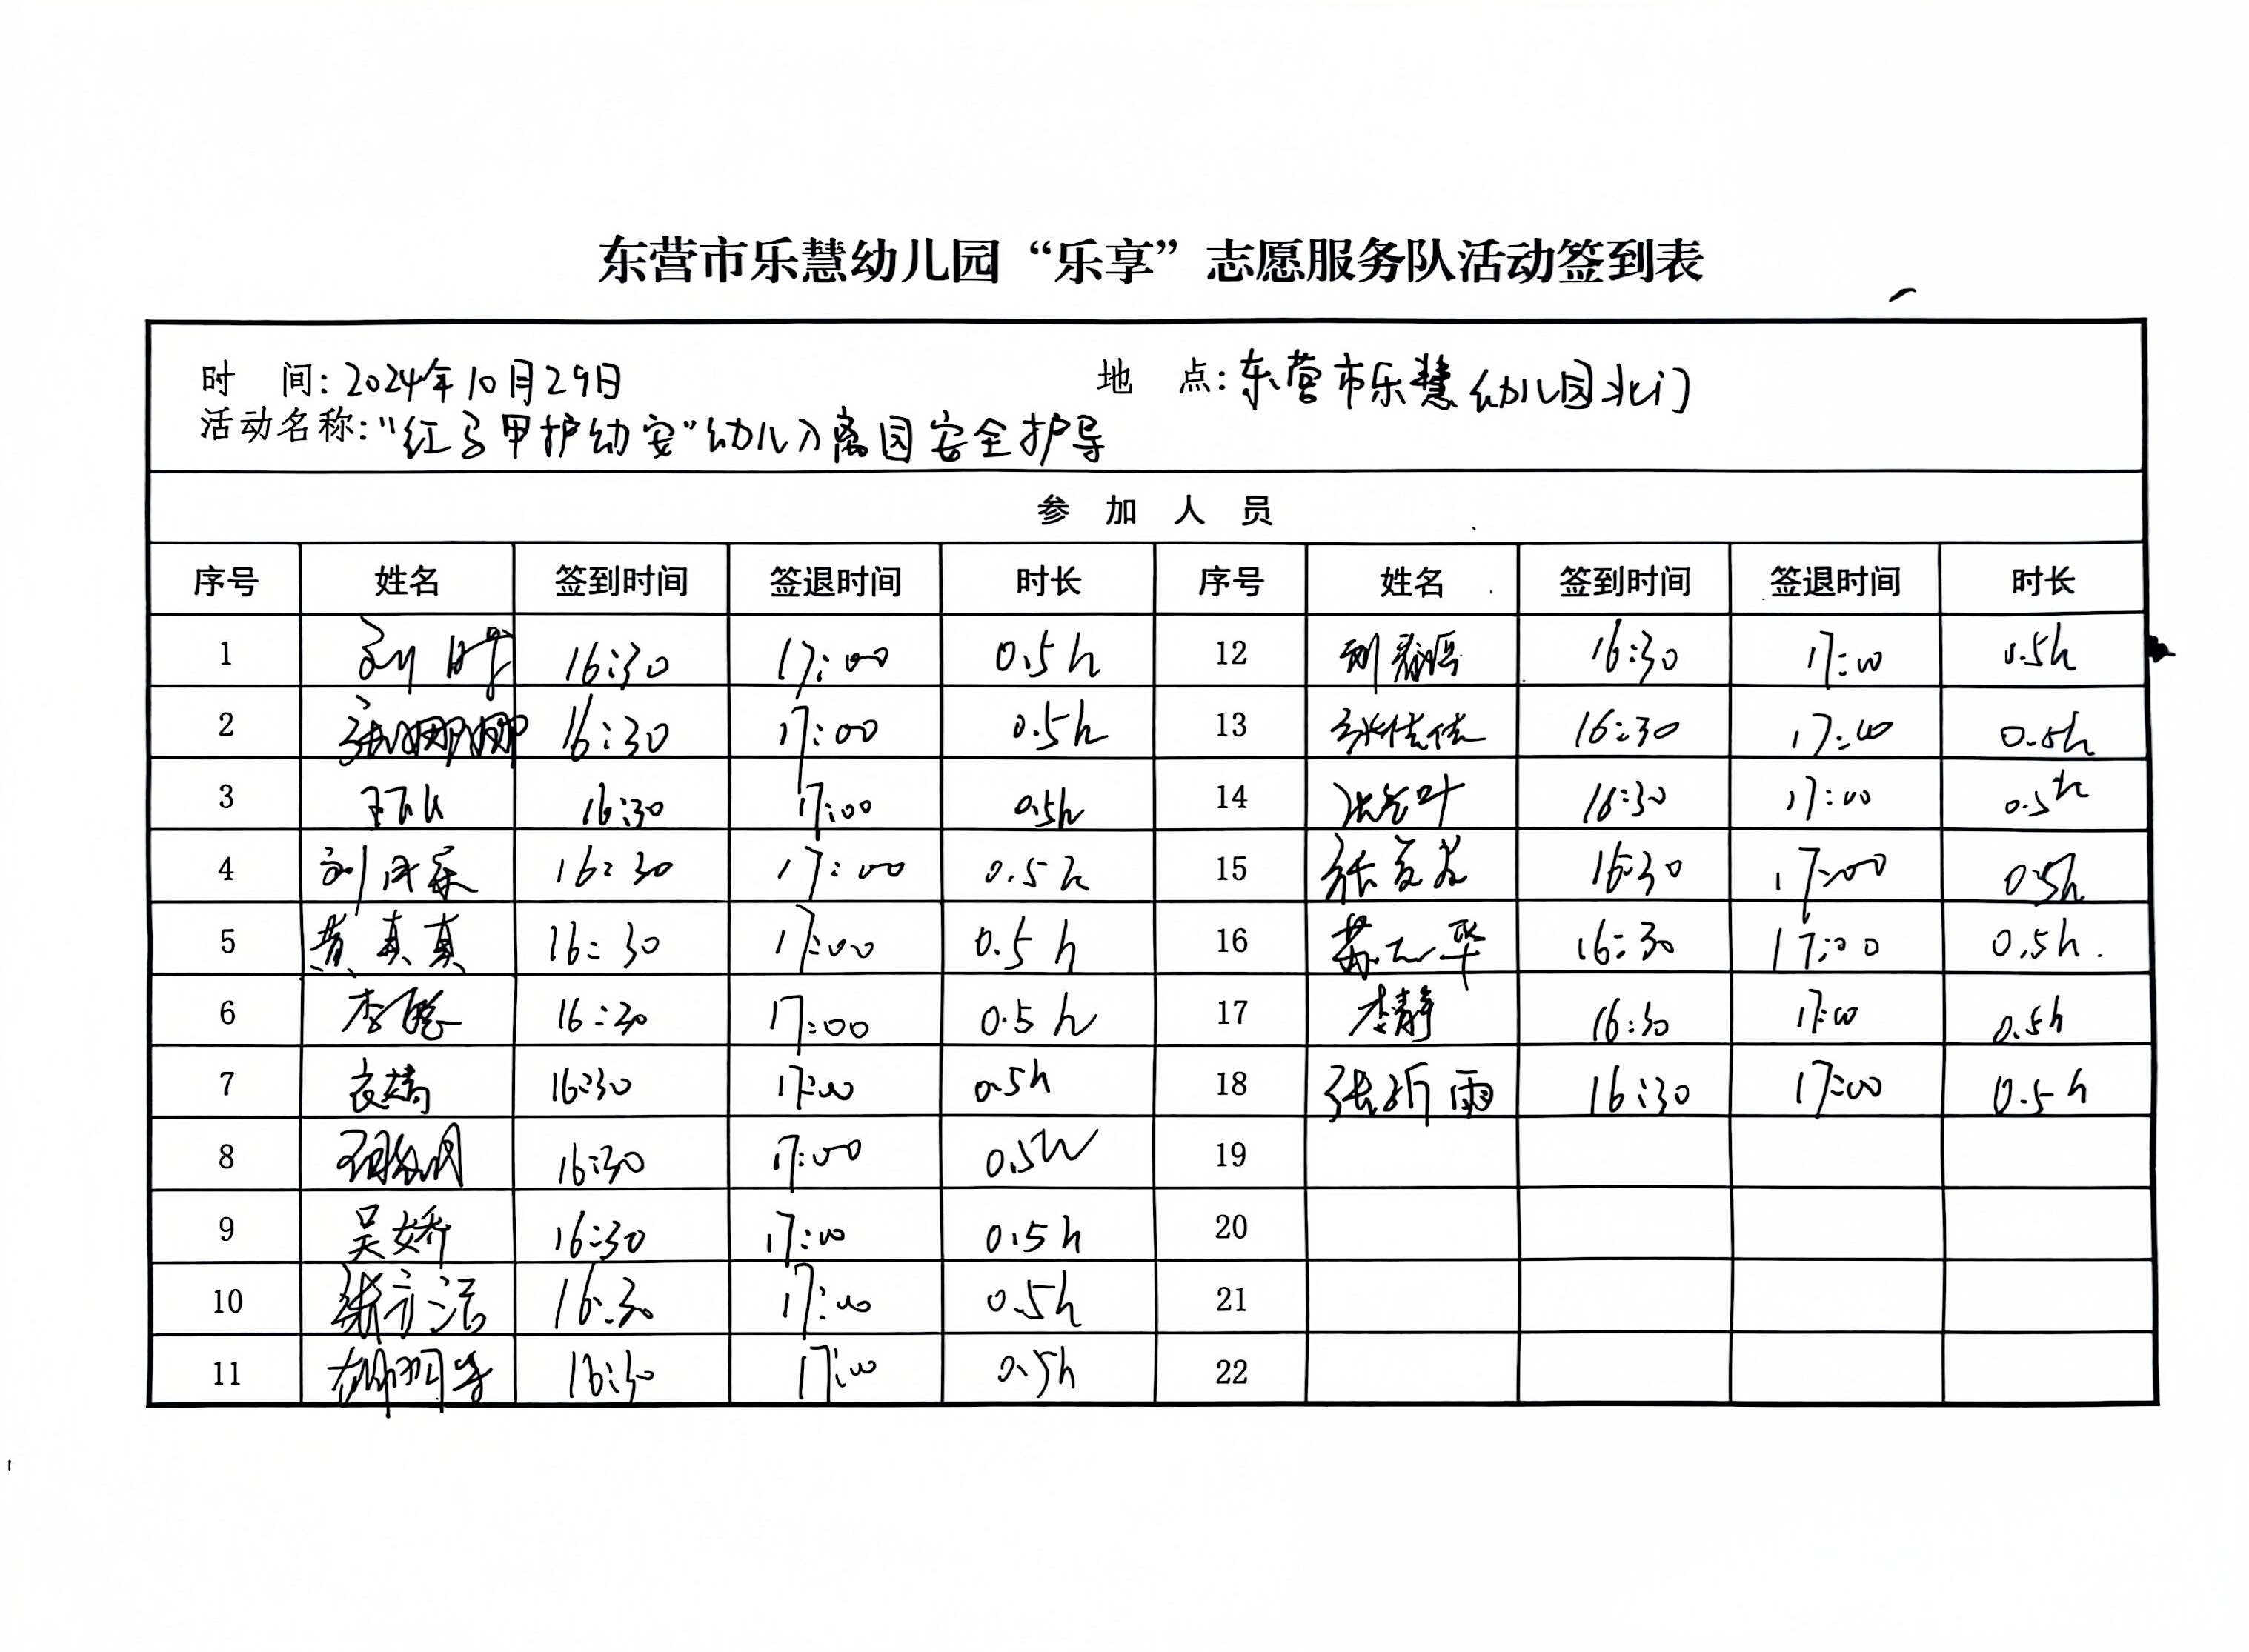 东营市乐慧幼儿园“乐享”志愿服务队活动签到表
时 间:2024年10月29日 地 点:东营市乐慧幼儿园北门
活动名称:“红马甲护幼安”幼儿入离园安全护导
参 加 人 员
序号 姓名 签到时间 签退时间 时长 序号 姓名 签到时间 签退时间 时长
1 16:30 17:00 0.5h 12 16:30 17:00 0.5h
2 张娜娜 16:30 17:00 0.5h 13 张佳佳 16:30 17:00 0.5h
3 16:30 17:00 0.5h 14 16:30 17:00 0.5h
4 16:30 17:00 0.5h 15 16:30 17:00 0.5h
5 黄真真 16:30 17:00 0.5h 16 16:30 17:00 0.5h.
6 16:30 17:00 0.5h 17 李静 16:30 17:00 0.5h
7 16:30 17:00 0.5h 18 16:30 17:00 0.5h
8 16:30 17:00 0.5h 19
9 吴娇 16:30 17:00 0.5h 20
10 16:30 17:00 0.5h 21
11 16:30 17:00 0.5h 22